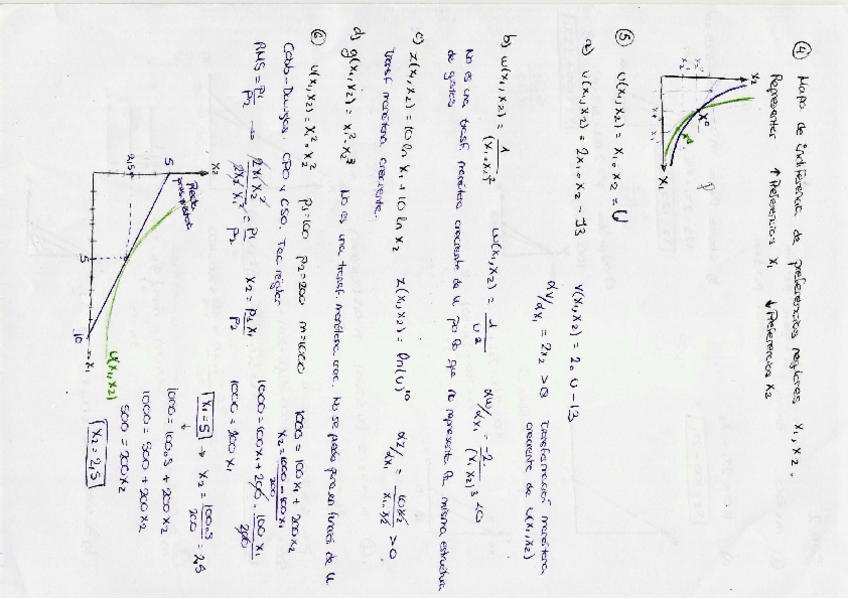 ④ Mapa de indiferencia de preferencias regulares x₁, x₂.
Representar ↑ Preferencias x₁ ↓ Preferencias x₂
x₂
x⁰
x₁
⑤ u(x₁,x₂) = x₁·x₂ = U
a) v(x₁,x₂) = 2x₁·x₂ - 13 v(x₁,x₂) = 2·U - 13
dV/dx₁ = 2x₂ > 0 Transformación monótona
creciente de u(x₁,x₂)
b) w(x₁,x₂) = 1/(x₁·x₂)² w(x₁,x₂) = 1/U² dw/dx₁ = -2/(x₁x₂)³ <0
No es una trasf. monótona creciente de u por lo que no representa la misma estructura
de gustos
c) z(x₁,x₂) = 10 ln x₁ + 10 ln x₂ z(x₁,x₂) = ln(U)¹⁰ dz/dx₁ = 10x₂/x₁·x₂ > 0
Transf. monótona creciente.
d) g(x₁,x₂) = x₁²·x₂³ No es una transf. monótona crec. No se puede poner en función de U.
⑥ u(x₁,x₂) = x₁²·x₂² p₁=100 p₂=200 m=1000
Cobb-Douglas. CPO y CSO. Tec. reglar
RMS = p₁/p₂ → 2x₁x₂²/2x₂x₁² = p₁/p₂ x₂ = p₁x₁/p₂
1000 = 100x₁ + 200x₂
x₂ = 1000 - 100x₁/200
1000 = 100x₁ + 200·100x₁/200
1000 = 200x₁
x₁=5 → x₂ = 100·5/200 = 2,5
1000 = 100·5 + 200x₂
1000 = 500 + 200x₂
500 = 200x₂
x₂ = 2,5
x₂
Recta
presupuestaria
5
2,5
5
10
x₁
u(x₁,x₂)